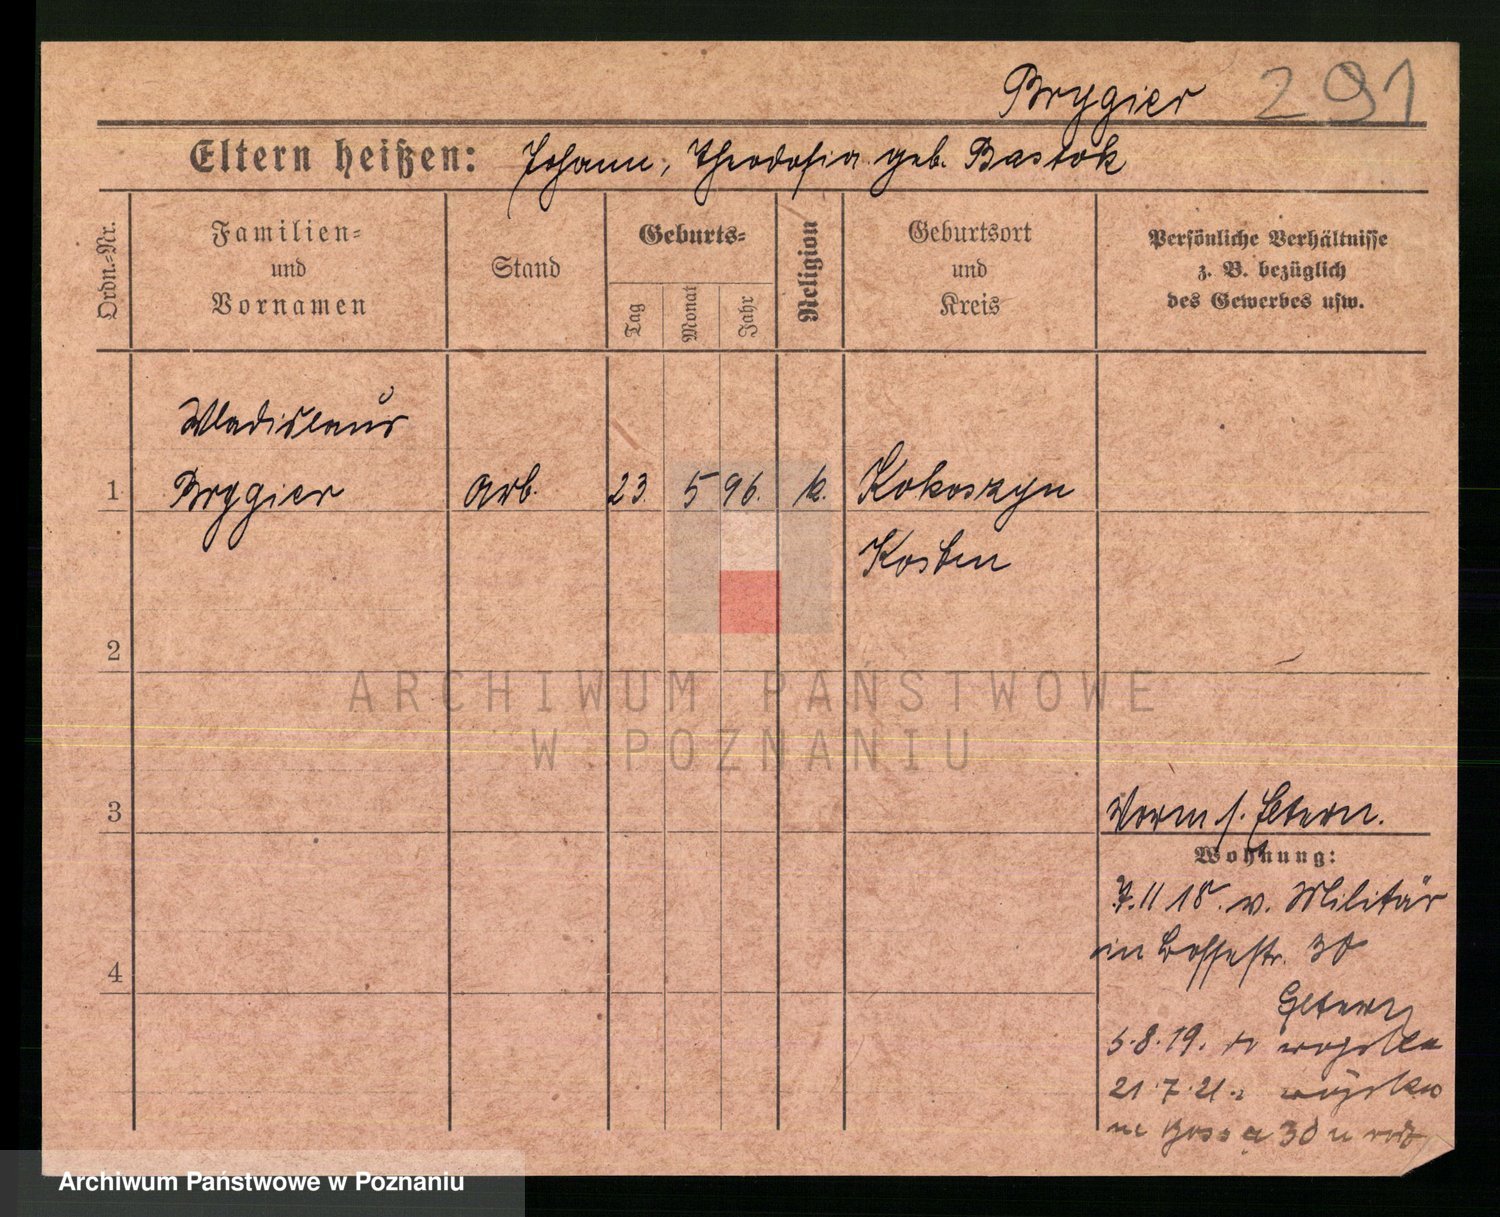 Brygier 291
Eltern heißen: Johann, Theodosia geb. Bastok
Ordn.=Nr.
Familien=
und
Vornamen
Stand
Geburts=
Tag
Monat
Jahr
Religion
Geburtsort
und
Kreis
Persönliche Verhältnisse
z. B. bezüglich
des Gewerbes usw.
Wladislaus
1 Brygier Arb. 23. 5 96. k. Kokoszyn
Kosten
2
ARCHIWUM PAŃSTWOWE
W POZNANIU
3 Vorm s. Eltern.
Wohnung:
7.11 18. v. Militär
in Bossestr. 30
4
Eltern
5.8.19. z wojska
21.7.21. z wojska
na 30 u rodz
Archiwum Państwowe w Poznaniu